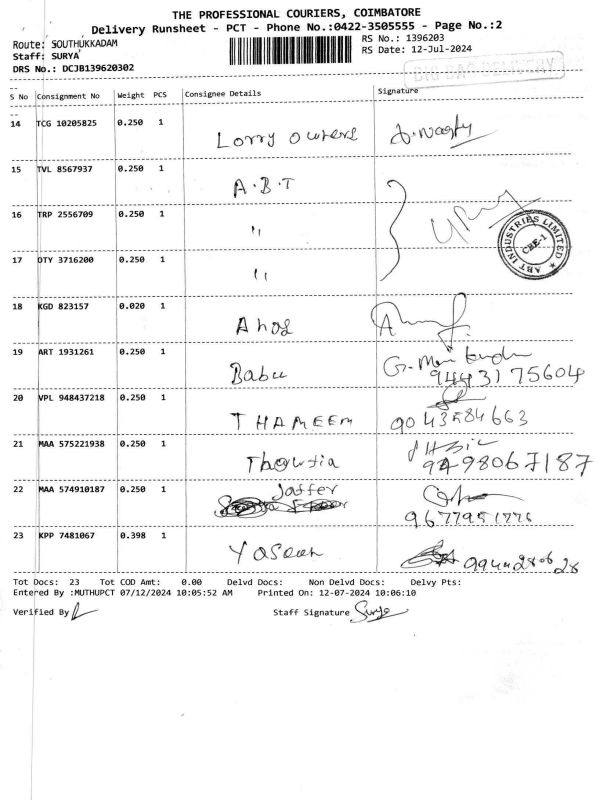 THE PROFESSIONAL COURIERS, COIMBATORE
Delivery Runsheet - PCT - Phone No.:0422-3505555 - Page No.:2
Route: SOUTHUKKADAM
RS No.: 1396203
Staff: SURYA
RS Date: 12-Jul-2024
DRS No.: DCJB139620302
BIG BAG DELIVERY
S No Consignment No Weight PCS Consignee Details Signature
14 TCG 10205825 0.250 1 Lorry owners
15 TVL 8567937 0.250 1 A.B.T
16 TRP 2556709 0.250 1 "
ABT INDUSTRIES LIMITED
CBE-1
17 OTY 3716200 0.250 1 "
18 KGD 823157 0.020 1
19 ART 1931261 0.250 1 Babu 9443175604
20 VPL 948437218 0.250 1 THAMEEM 9043584663
21 MAA 575221938 0.250 1 9498067187
22 MAA 574910187 0.250 1 Jaffer
23 KPP 7481067 0.398 1
Tot Docs: 23 Tot COD Amt: 0.00 Delvd Docs: Non Delvd Docs: Delvy Pts:
Entered By :MUTHUPCT 07/12/2024 10:05:52 AM Printed On: 12-07-2024 10:06:10
Verified By Staff Signature Surya